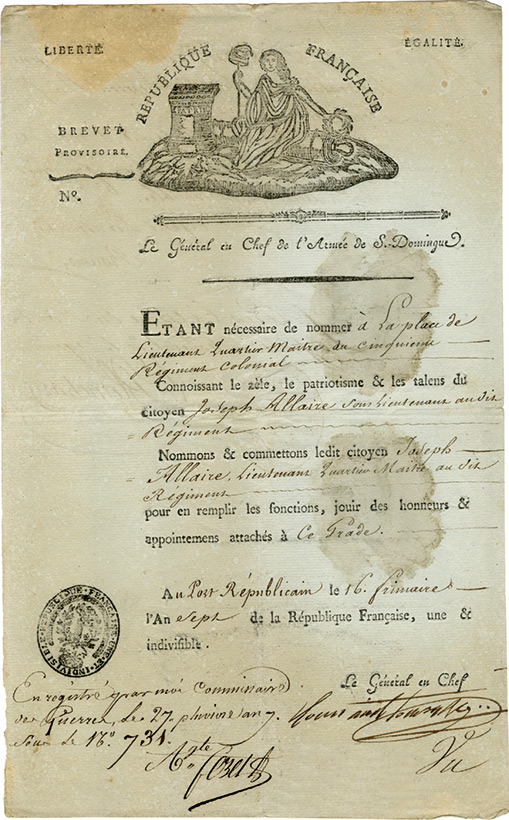 LIBERTÉ
ÉGALITÉ.
REPUBLIQUE FRANÇAISE
BREVET
PROVISOIRE.
Nº.
Le Général en Chef de l'Armée de S.-Domingue.
ETANT nécessaire de nommer à La place de
Lieutenant Quartier Maitre du Cinquieme
Régiment Colonial
Connoissant le zèle, le patriotisme & les talens du
citoyen Joseph Allaire sous Lieutenant au dit
Régiment
Nommons & commettons ledit citoyen Joseph
Allaire, Lieutenant Quartier Maitre au dit
Régiment
pour en remplir les fonctions, jouir des honneurs &
appointemens attachés à Ce Grade.
Au Port Républicain le 16. frimaire
l'An Sept de la République Française, une &
indivisible.
REPUBLIQUE FRANÇAISE UNE ET INDIVISIBLE
Le Général en Chef
Enregistré par moi Commissaire
de Guerre, le 27 pluviose an 7.
sous le Nº 731.
Vu